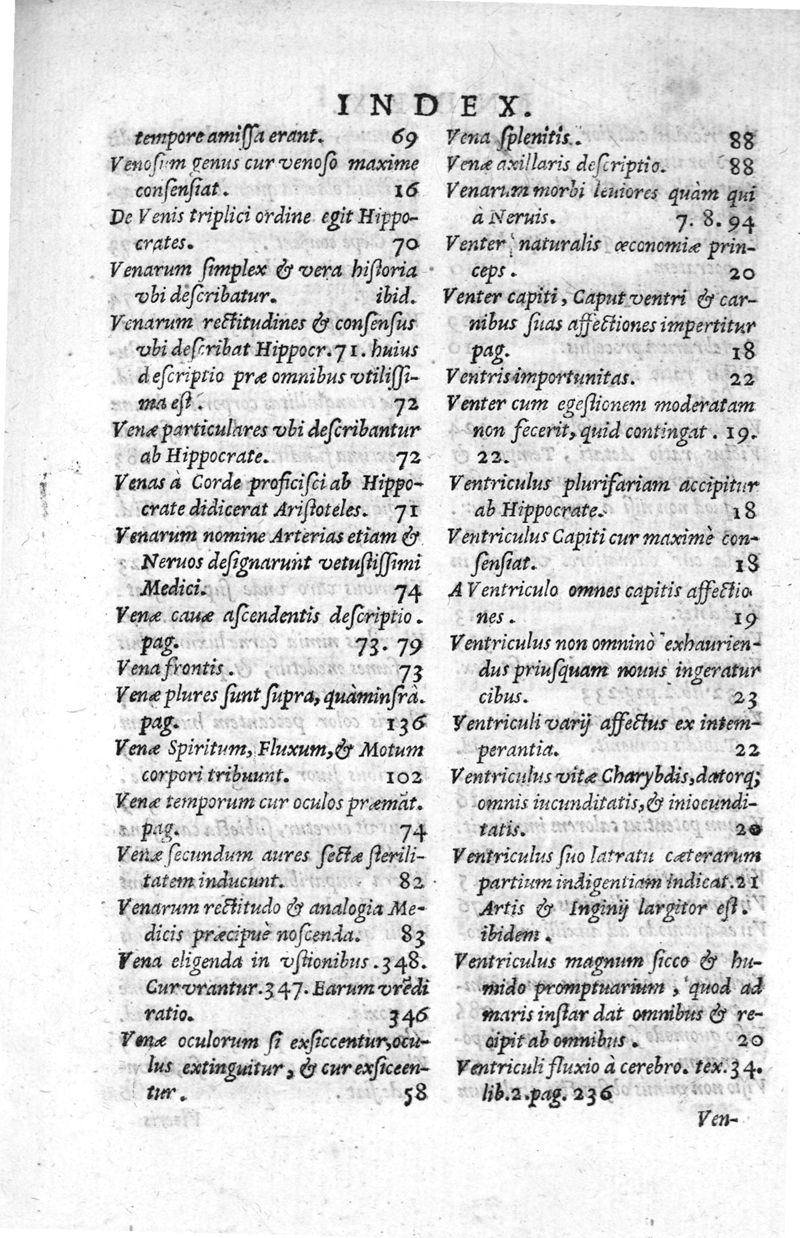 INDEX.
tempore amissa erant. 69
Venosum genus cur venoso maxime
consensiat. 16
De Venis triplici ordine egit Hippo-
crates. 70
Venarum simplex & vera historia
vbi describatur. ibid.
Venarum rectitudines & consensus
vbi describat Hippocr. 71. huius
descriptio præ omnibus vtilissi-
ma est. 72
Venæ particulares vbi describantur
ab Hippocrate. 72
Venas à Corde proficisci ab Hippo-
crate didicerat Aristoteles. 71
Venarum nomine Arterias etiam &
Neruos designarunt vetustissimi
Medici. 74
Venæ cauæ ascendentis descriptio.
pag. 73. 79
Vena frontis. 73
Venæ plures sunt supra, quàm infrà.
pag. 136
Venæ Spiritum, Fluxum, & Motum
corpori tribuunt. 102
Venæ temporum cur oculos præmāt.
pag. 74
Venæ secundum aures sectæ sterili-
tatem inducunt. 82
Venarum rectitudo & analogia Me-
dicis præcipuè noscenda. 83
Vena eligenda in vstionibus. 348.
Cur vrantur. 347. Earum vrēdi
ratio. 346
Venæ oculorum si exsiccentur, ocu-
lus extinguitur, & cur exsiccen-
tur. 58
Vena splenitis. 88
Venæ axillaris descriptio. 88
Venarum morbi leuiores quàm qui
à Neruis. 7. 8. 94
Venter naturalis œconomiæ prin-
ceps. 20
Venter capiti, Caput ventri & car-
nibus suas affectiones impertitur
pag. 18
Ventris importunitas. 22
Venter cum egestionem moderatam
non fecerit, quid contingat. 19.
22.
Ventriculus plurifariam accipitur
ab Hippocrate. 18
Ventriculus Capiti cur maximè con-
sensiat. 18
A Ventriculo omnes capitis affectio
nes. 19
Ventriculus non omninò exhaurien-
dus priusquam nouus ingeratur
cibus. 23
Ventriculi varij affectus ex intem-
perantia. 22
Ventriculus vitæ Charybdis, datorq;
omnis iucunditatis, & iniocundi-
tatis. 20
Ventriculus suo latratu cæterarum
partium indigentiam indicat. 21
Artis & Inginij largitor est.
ibidem.
Ventriculus magnum sicco & hu-
mido promptuarium, quod ad
maris instar dat omnibus & re-
cipit ab omnibus. 20
Ventriculi fluxio à cerebro. tex. 34.
lib. 2. pag. 236
Ven-